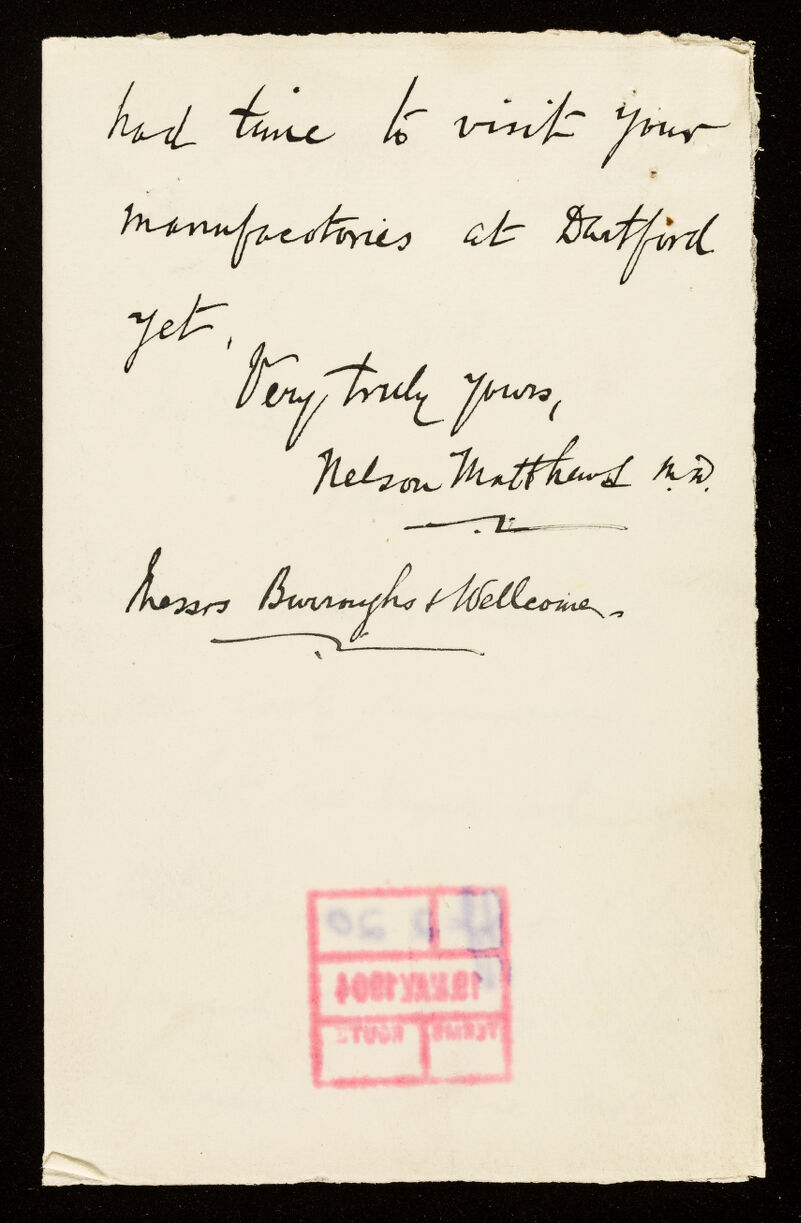 had time to visit your
manufacotories at Dartford
yet.
Very truly yours,
Nelson Matthews M.D.
Messrs Burroughs & Wellcome.
19 MAY 1904
TERMS ROUTE